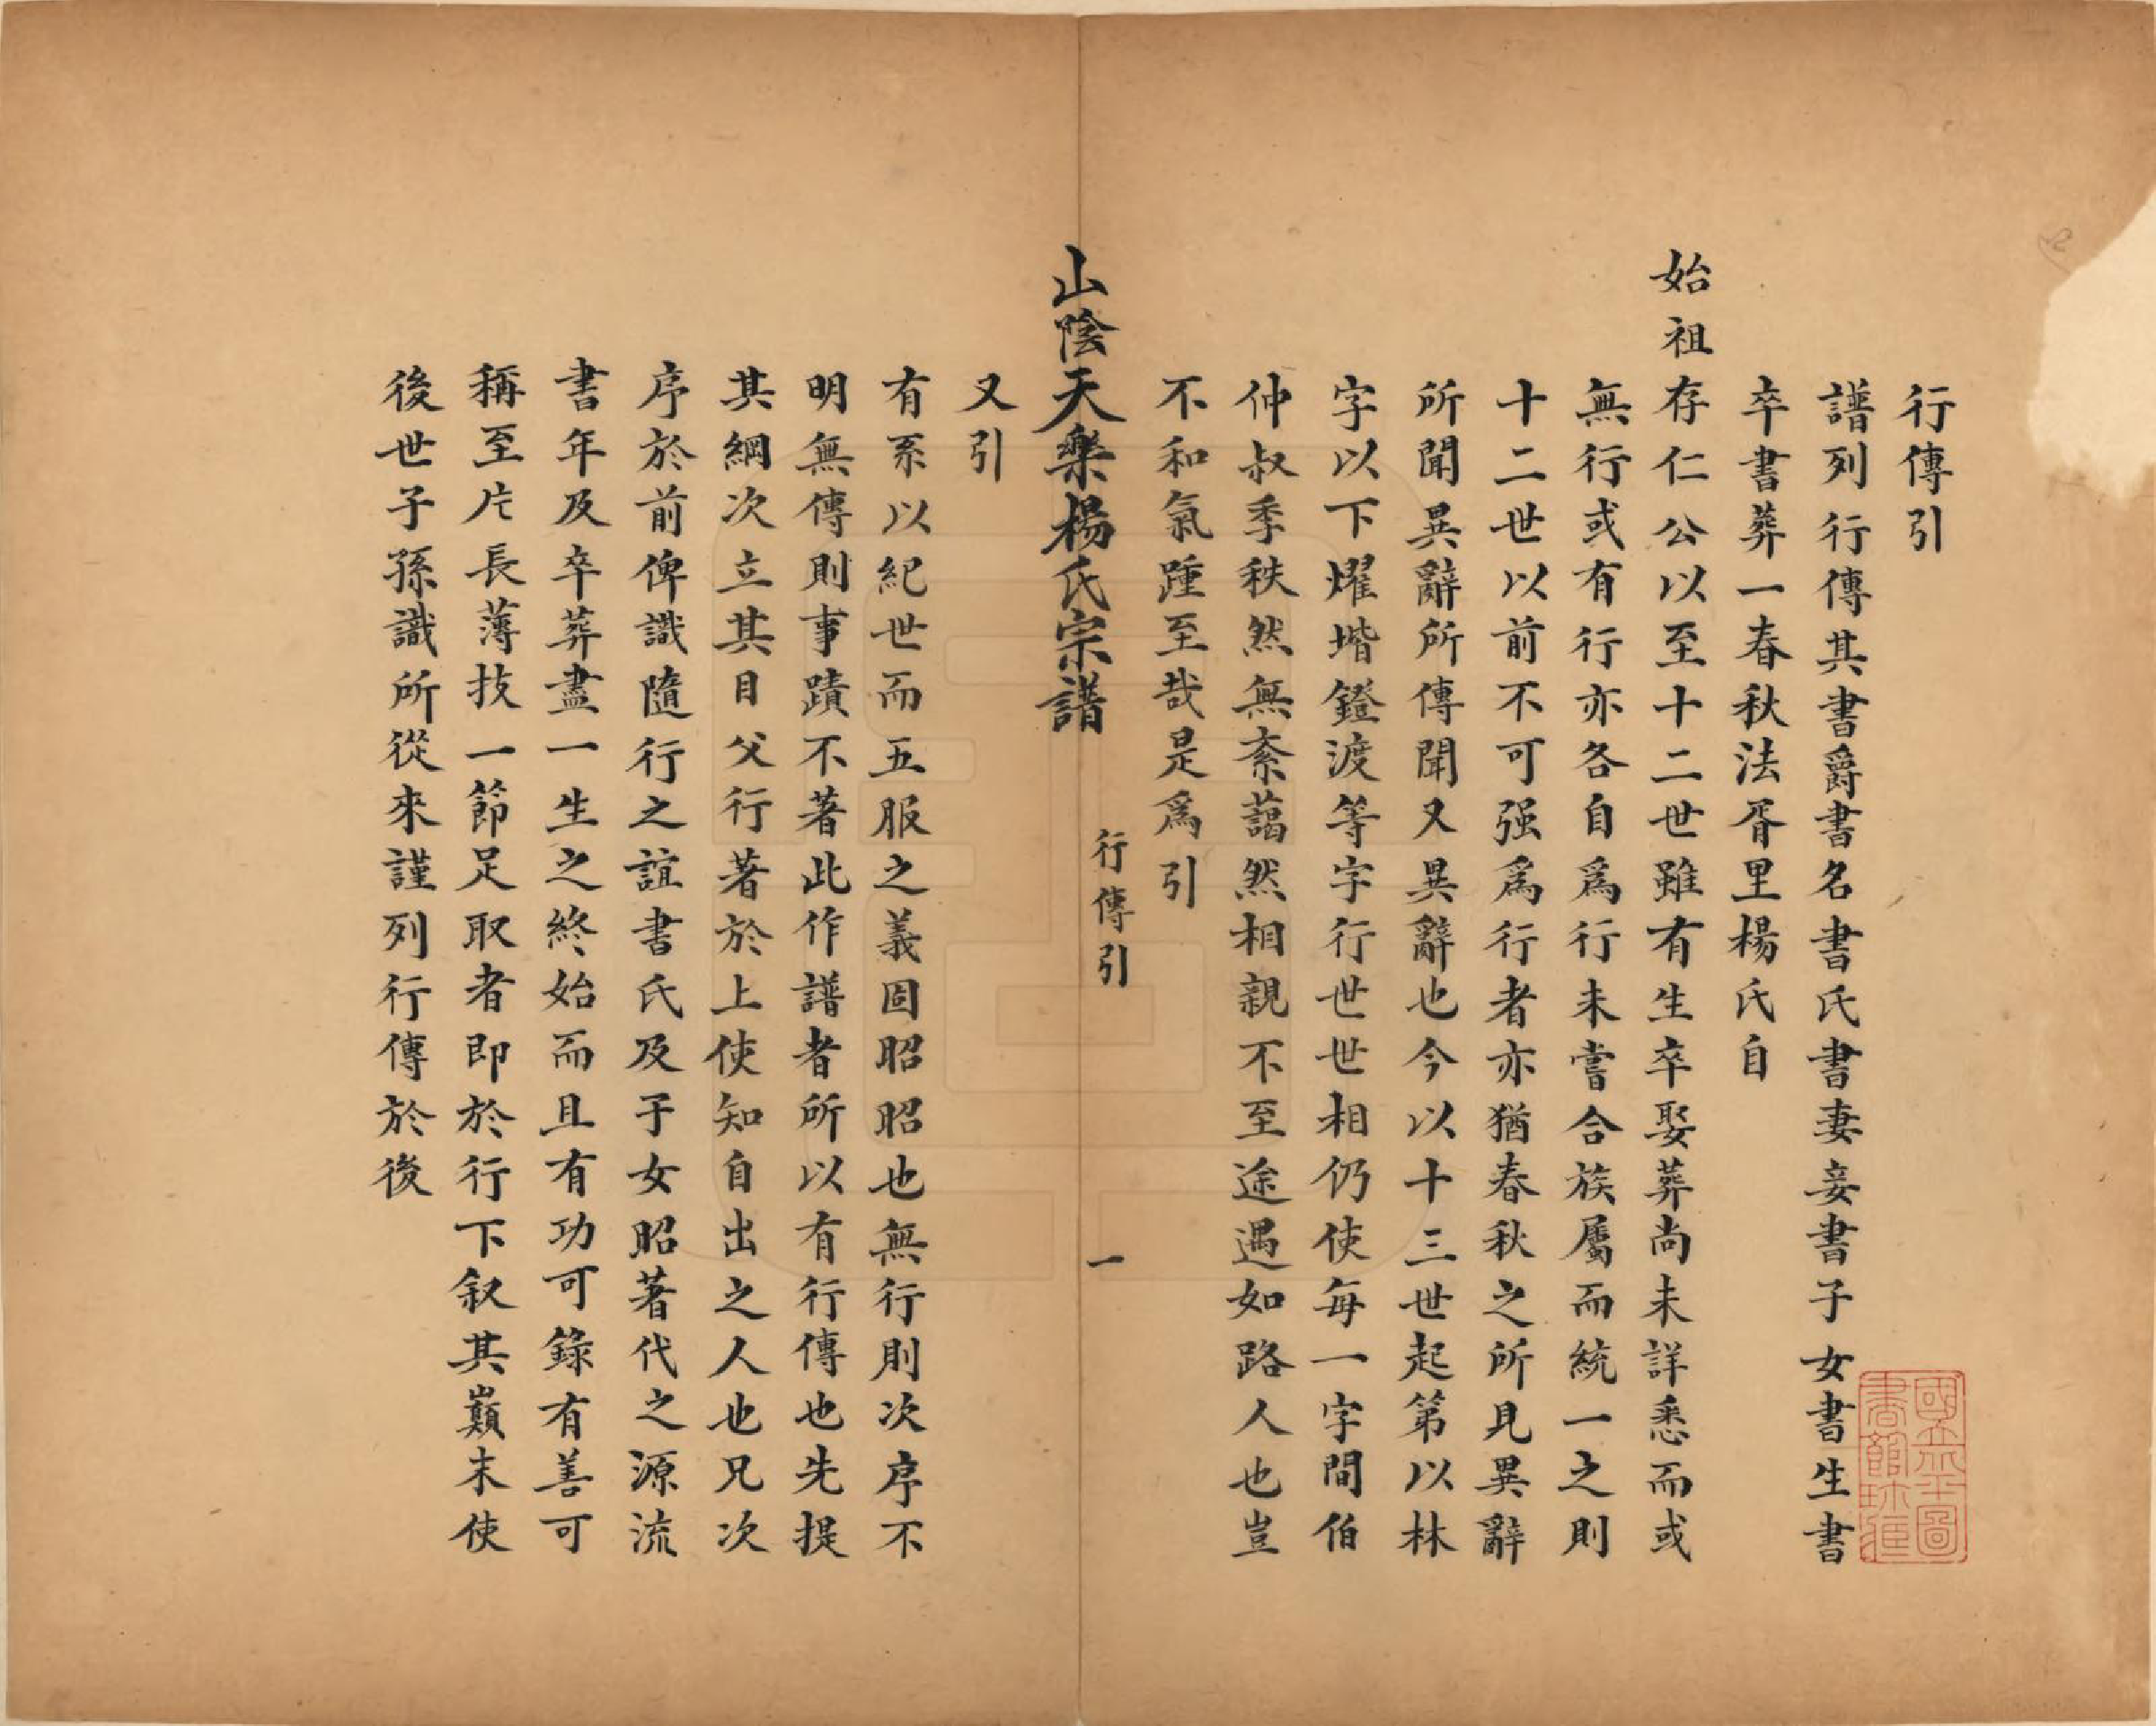 行傳引
譜列行傳其書爵書名書氏書妻妾書子女書生書
卒書葬一春秋法胥里楊氏自
始祖存仁公以至十二世雖有生卒娶葬尚未詳悉而或
無行或有行亦各自爲行未嘗合族屬而統一之則
十二世以前不可强爲行者亦猶春秋之所見異辭
所聞異辭所傳聞又異辭也今以十三世起第以林
字以下燿堦鐙渡等字行世世相仍使每一字間伯
仲叔季秩然無紊藹然相親不至途遇如路人也豈
不和氣踵至哉是爲引
山陰天樂楊氏宗譜 行傳引 一
又引
有系以紀世而五服之義固昭昭也無行則次序不
明無傳則事蹟不著此作譜者所以有行傳也先提
其綱次立其目父行著於上使知自出之人也兄次
序於前俾識隨行之誼書氏及子女昭著代之源流
書年及卒葬盡一生之終始而且有功可錄有善可
稱至片長薄技一節足取者即於行下叙其巔末使
後世子孫識所從來謹列行傳於後